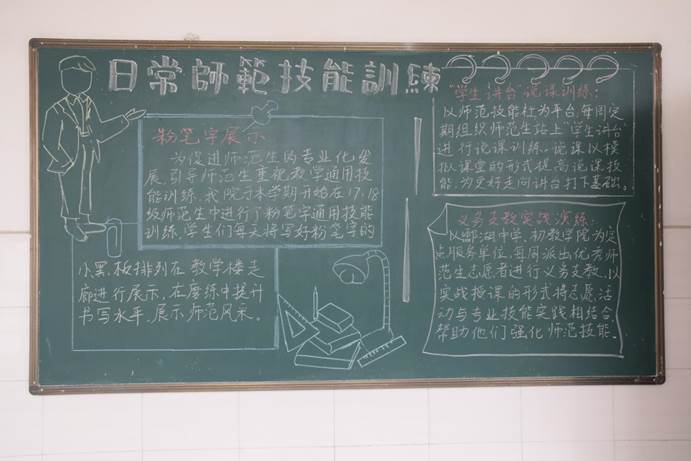 日常師範技能訓練
粉笔字展示
为促进师范生的专业化发
展,引导师范生重视教学通用技
能训练,我院于本学期开始在17、18
级师范生中进行了粉笔字通用技能
训练,学生们每天将写好粉笔字的
小黑板排列在教学楼走
廊进行展示,在磨练中提升
书写水平,展示师范风采。
"学生讲台"说课训练:
以师范技能社为平台,每周定
期组织师范生站上"学生讲台"
进行说课训练,说课以模
拟课堂的形式提高说课技
能,为更好走向讲台打下基础。
义务支教实践演练:
以郦湖中学、初教学院为定
点服务单位,每周派出优秀师
范生志愿者进行义务支教,以
实战授课的形式将志愿活
动与专业技能实践相结合,
帮助他们强化师范技能。